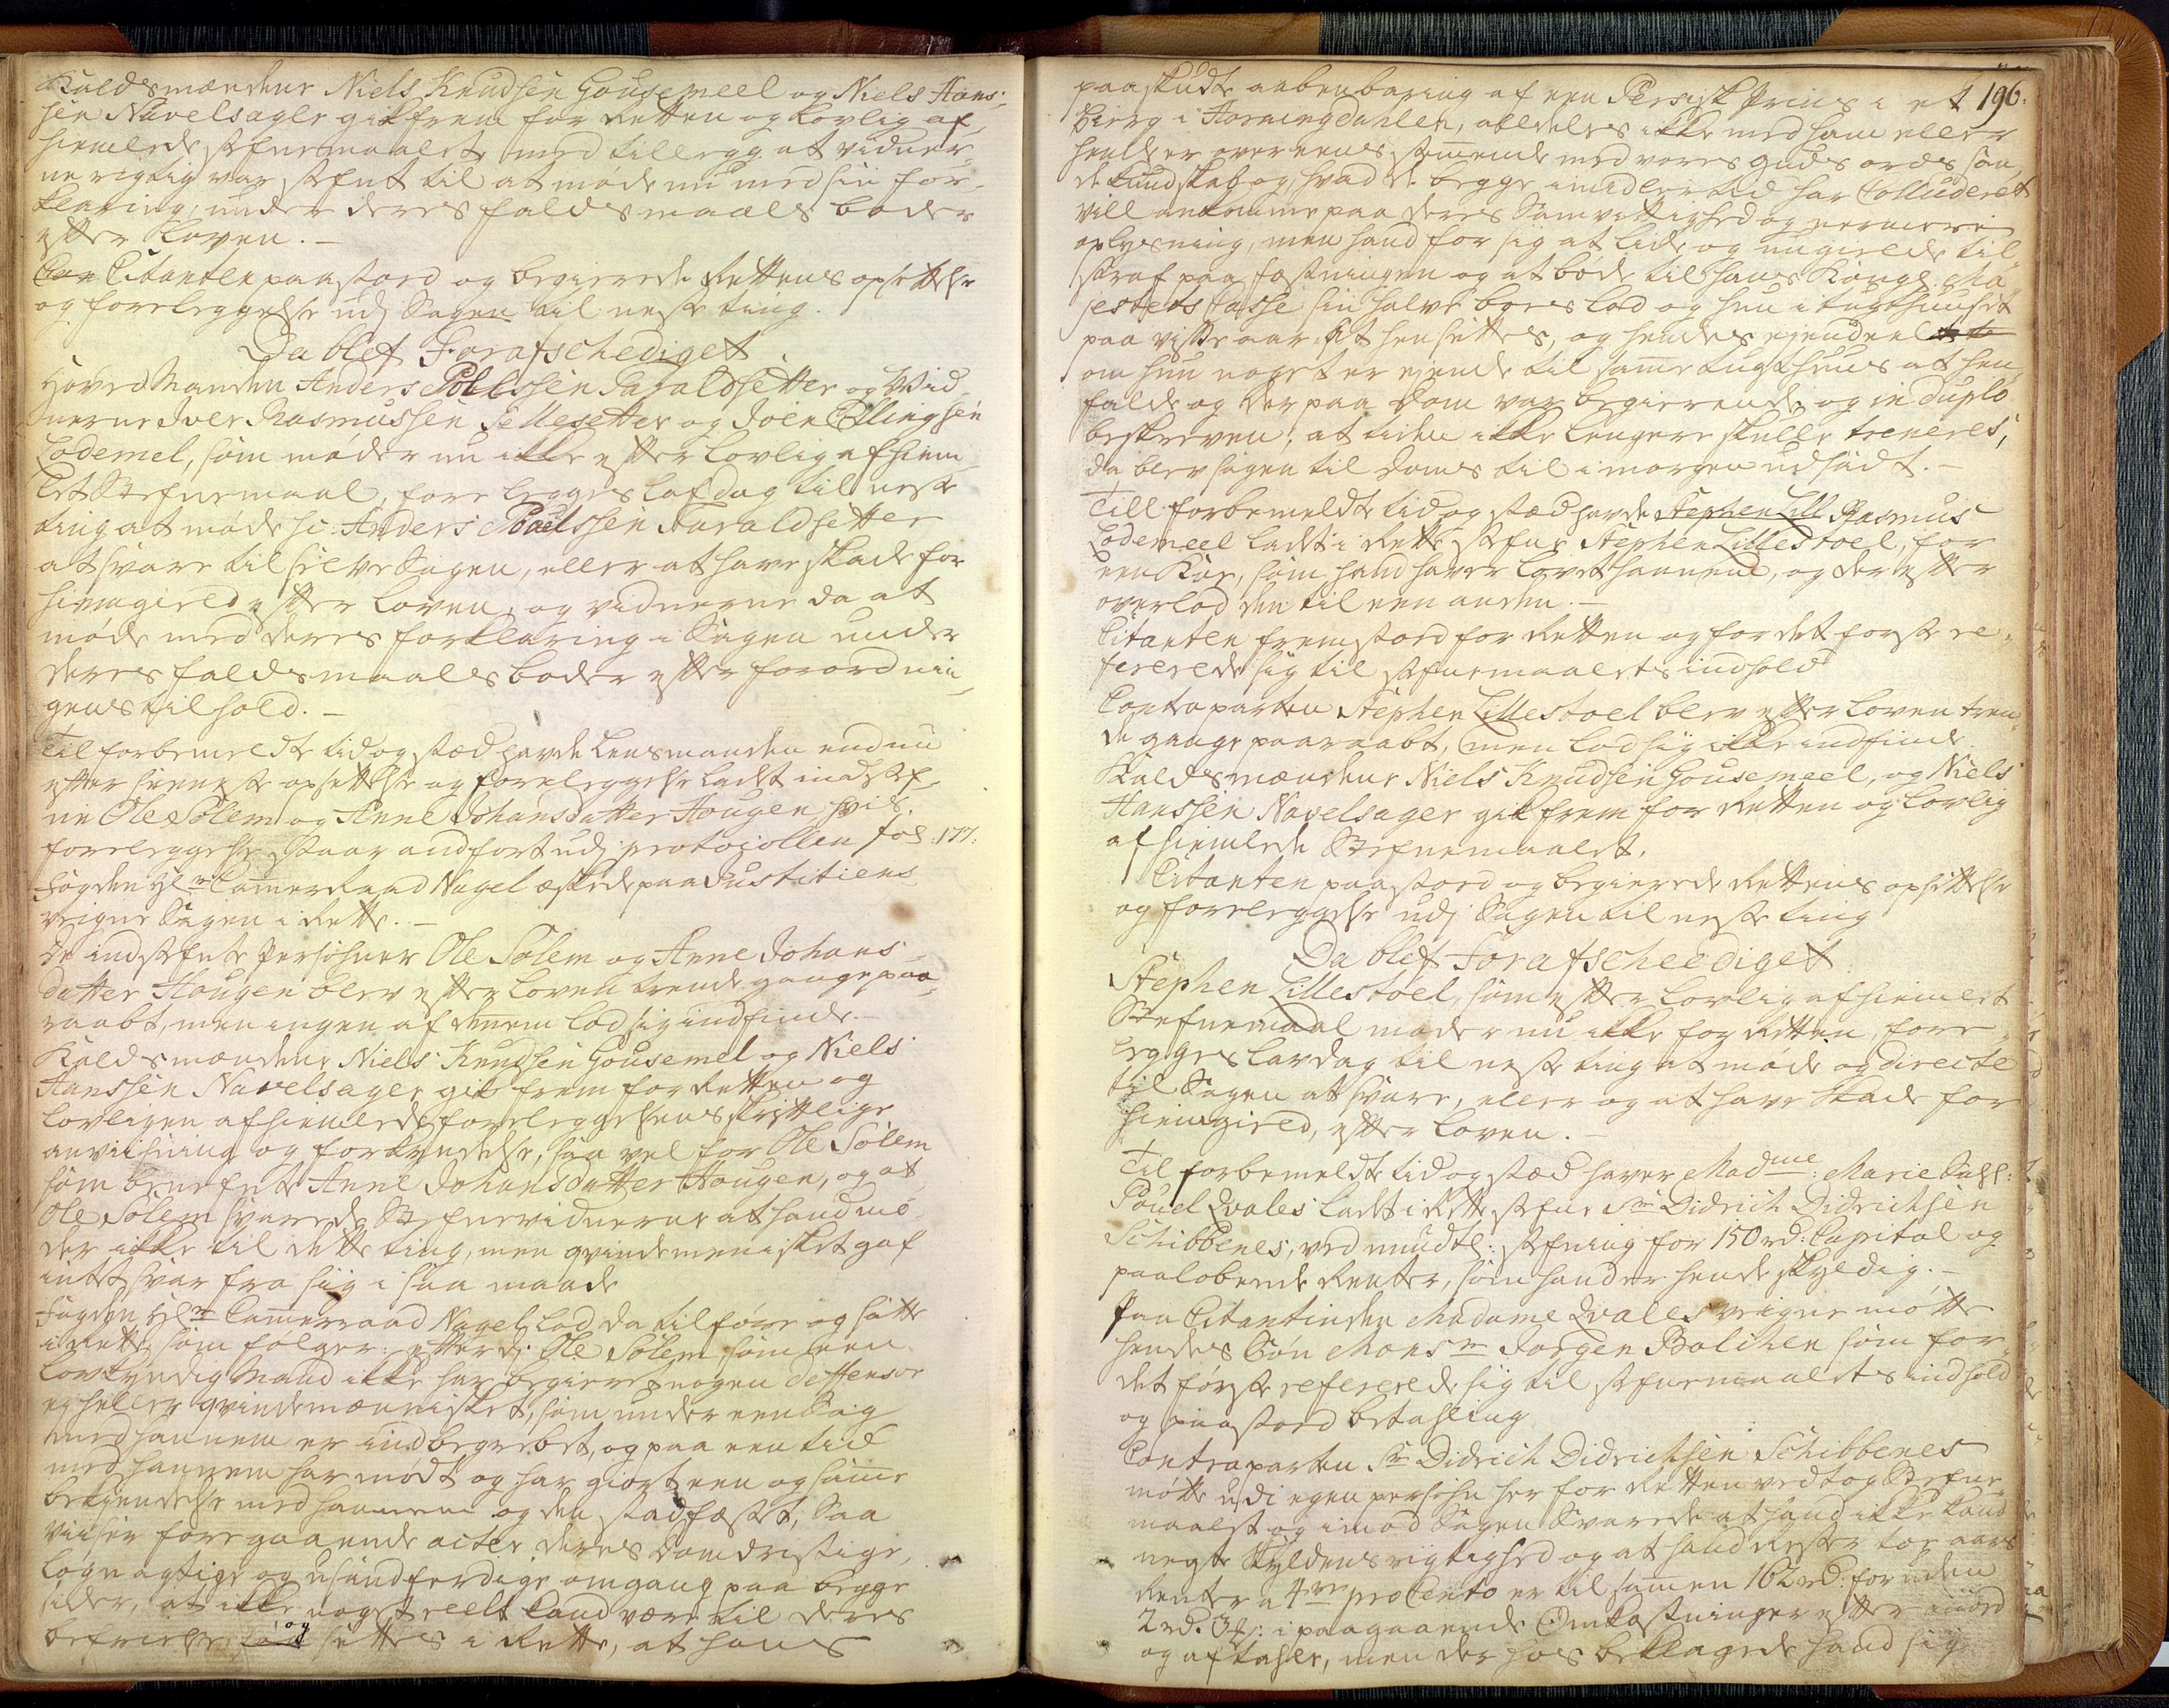 Kaldsmændene Niels Knudsen Gousemeel og Niels Hans,
sen Navelsager gik frem for Retten og lovlig af,
hiemlede stefnemaalet med tillegg at vidner,
ne rigtig var stefnt til at møde nu med sin for,
klaring, under deres faldsmaals bøder
efter Loven. –
Citanten paastoed og begierede Rettens opsettelse
og foreleggelse udj Sagen til neste ting.
Da blef Forafschediget
Hoved Manden Anders Poulssen Faraldsetter og Vid,
nerne Iver Rasmussen Sellesetter og Joen Ellingsen
Lødemel, som møder nu ikke efter lovlig afhiem,
let Stefnemaal, forelegges lafdag til neste
ting at møde sc: Anders Poulssen Faraldsetter
at svare til selve Sagen, eller at have skade for
hiemgield efter Loven, og vidnerne da at
møde med deres forklaring i Sagen under
deres faldsmaals bøder efter forordnin,
gens tilhold. –
Til forbemeldte tid og stæd hafde Lensmanden endnu
efter seeneste opsettelse og foreleggelse ladet indstef,
ne Ole Solem og Anne Johansdatter Hougen, hvis
foreleggelse staar andført udj protocollen fol: 177:
Fogden Hr Cammerraad Nagel æskede paa Justitiens
veigne Sagen i Rette. –
De indstefnte Persohner Ole Solem og Anne Johans,
datter Hougen blev efter Loven trende gange paa,
raabt, men ingen af dennem lod sig indfinde. –
Kaldsmændene Niels Knudsen Gousemel og Niels
Hanssen Navelsager gik frem for Retten og
lovligen afhiemlede foreleggelsens skriftlige
anviisning og forkyndelse, saa vel for Ole Solem
som benefnte Anne Johansdatter Hougen, og at
Ole Solem svarede Stefnevidnerne at hand mø,
der ikke til dette ting, men qvindemennisket gaf
intet svar fra sig i saa maade
Fogden Hr Cammerraad Nagel lod da tilføre og satte
i Rette som følger: efterdj Ole Solem som een
lovkyndig Mand ikke har begieret nogen deffensor
ej heller qvindemennisket, som under een Sag
med hannem er indbegrebet, og paa een tid
med hannem har mødt og har giort een og samme
bekiendelse med hannem og den stadfæstet; Saa
viiser foregaaende acter deres domdristige,
løgnagtige og usandferdige omgang paa begge
sider, at ikke noget reelt kand være til deres
befrielse, og settes i Rette, at hans
196:
paaskudte aabenbaring af een Persisk Prins i et
bierg i Horningdahlen, aldeles ikke med ham eller
hende er overeens stemmende med vores Guds ords san,
de kundskab og hvad de begge imidlertid har Colluderet
vill ankomme paa deres Samvittighed og nermere
oplysning, men hand for sig at lide og undgielde til
straf paa fæstningen og at bøde til hans Kongl: Ma,
jestets Casse sin halve boes lod og hun i tugthuuset
paa visse aar at hensettes, og hendes ejendeel
om hun noget er ejende til samme tugthuus at hen,
falde og derpaa Dom var begierende og in duplo
beskreven; at tiden ikke lengere skulle treneres;
da blev Sagen til Doms til i morgen udsadt. –
Till forbemeldte tid og stæd hafde Rasmus
Lødemeel ladt i Rette stefne Stephen Lillestoel, for
een Koe, som hand haver lovet hannem, og der efter
overlod den til een anden. –
Citanten fremstoed for Retten og for det første re,
fererede sig til stefnemaalets indhold
Contraparten Stephen Lillestoel blev efter Loven tren,
de gange paaraabt, men lod sig ikke indfinde
Kaldsmændene Niels Knudsen Gousemeel, og Niels
Hanssen Navelsager gik frem for Retten og lovlig
afhiemlede Stefnemaalet,
Citanten paastoed og begierede Rettens opsettelse
og foreleggelse udj Sagen til neste ting
Da blef Forafscheediget
Stephen Lillestoel, som efter lovlig afhiemlet
Stefnemaal møder nu ikke for Retten, fore,
legges lavdag til neste ting at møde og directe
til Sagen at svare, eller og at have Skade for
hiemgield, efter Loven. –
Til forbemeldte tid og stæd haver Madme: Marie Sahl:
Pouel Qvales ladt i Rette stefne Sr Didrich Didrichsen
Schibbenes, ved mundtl: stefning for 150 rd: Capital og
paaløbende Renter, som hand er hende skyldig. –
Paa Citantinden Madame Qvales veigne møtte
hendes Søn Monsr Jørgen Balchen som for
det første refererede sig til stefnemaalets indhold
og paastoed betahling
Contraparten Sr Didrich Didrichsen Schibbenes
møtte udi egen persohn her for Retten vedtog Stefne,
maalet og imod Sagen Svarede at hand ikke kand
negte Skyldens rigtighed og at hand rester toe aars
Renter a 4re pro Cento er til sammen 162 rd: foruden
2 rd. 3 : i paagaaende Omkostninger efter accord
og aftahle, men der hos beklagede hand sig